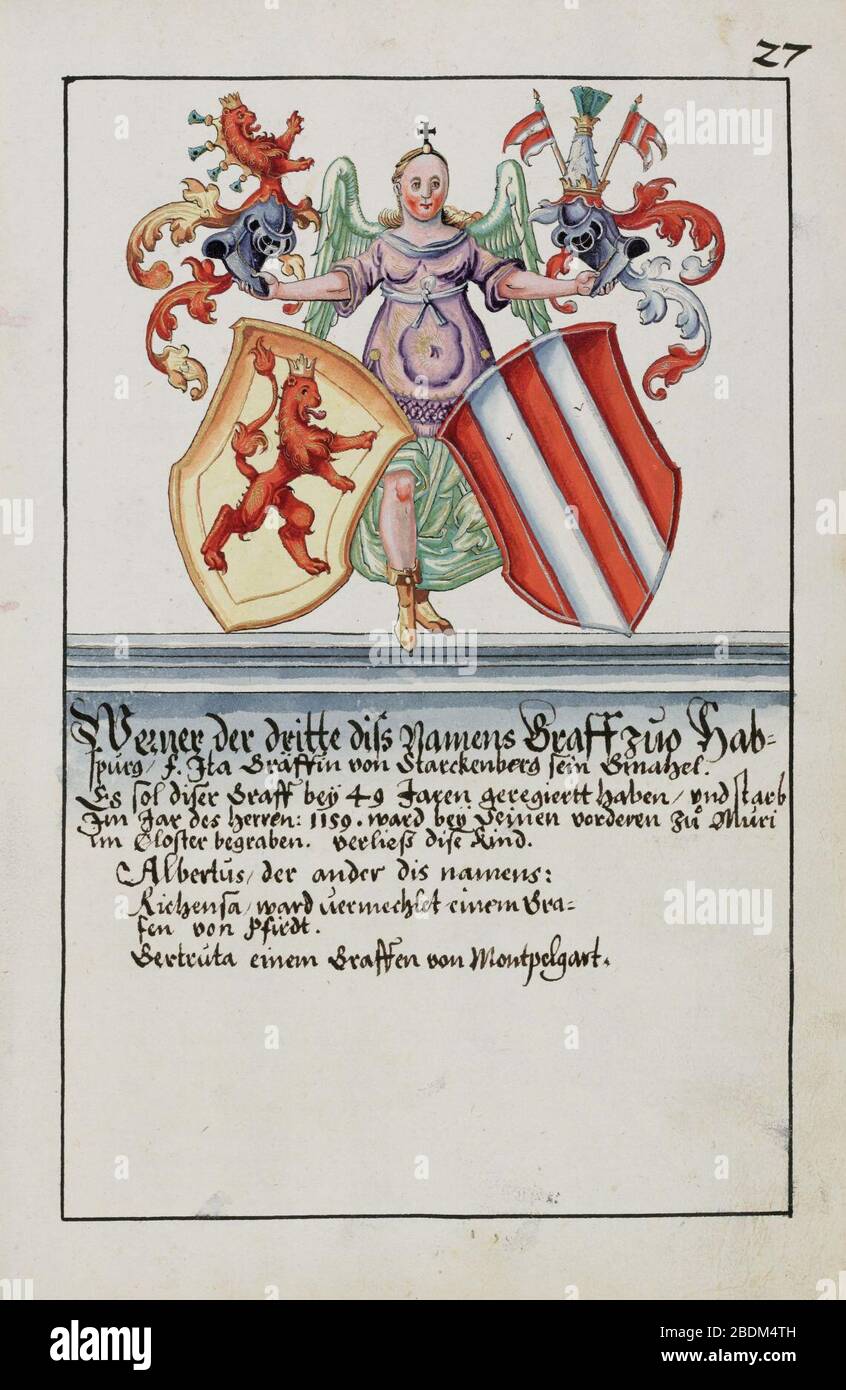 27
Werner der dritte diss Namens Graff zuo Hab-
spurg / f. Ita Gräffin von Starckenberg sein Gmahel.
Es sol diser Graff beÿ 49 Jaren geregiertt haben / und starb
Im Jar des Herren: 1159. ward bey seinen vorderen zů Muri
im Closter begraben. verließ dise Kind.
Albertus / der ander dis namens:
Richensa / ward vermechlet einem Gra-
fen von Pfirdt.
Gertruta einem Graffen von Montpelgart.
alamy
Image ID: 2BDM4TH
www.alamy.com